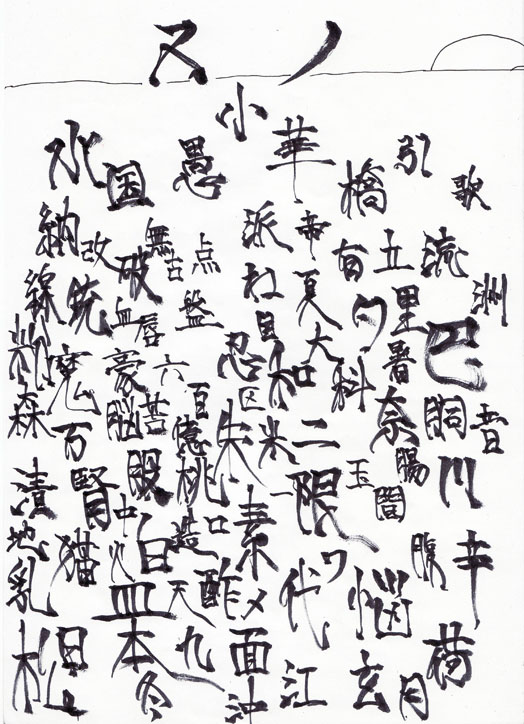 スノ
小
歌 洲 昔 辛 荷
引 流 巴 胴 川 腹 月
橋 立 里 暑 奈 腸 闇 悩 玄
有 ク 科 玉 ワ 代 江
華 帝 夏 大 口 二 限
派 ね 目 和 米 一 素 〆 面 沖
忍 区 朱 口 酢
愚 点 盤 百 億 桃 造 天 九
無 古 唇 六 苦 股 白 本 冬
国 破 血 豪 脳 中 火 皿
水 改 統 魔 百 腎 猫
納 線 粉 森 漬 地 乳 札